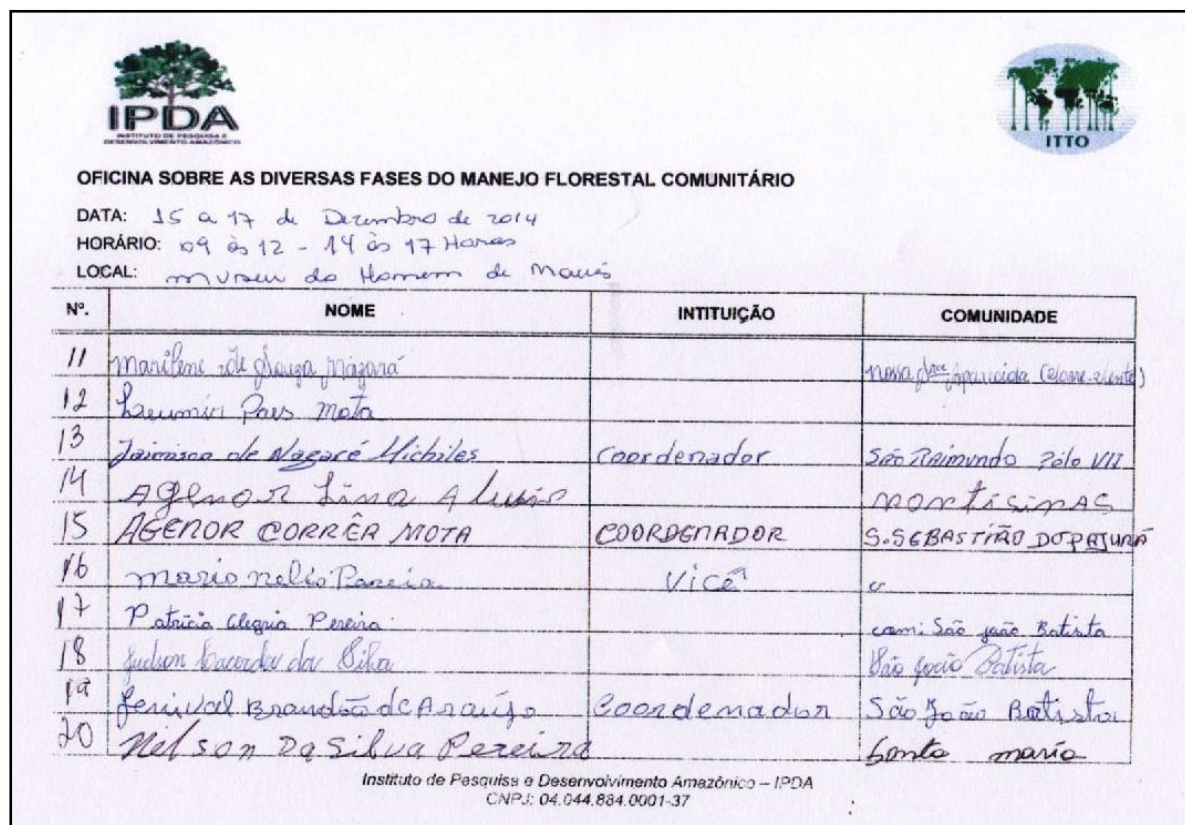 IPDA
INSTITUTO DE PESQUISA E
DESENVOLVIMENTO AMAZÔNICO
ITTO
OFICINA SOBRE AS DIVERSAS FASES DO MANEJO FLORESTAL COMUNITÁRIO
DATA: 15 a 17 de Dezembro de 2014
HORÁRIO: 09 às 12 - 14 às 17 Horas
LOCAL: museu do Homem de Maués
Nº. NOME INTITUIÇÃO COMUNIDADE
11 Marilene de Souza nossa Aparecida
12 Paes Mota
13 de Nazaré Michiles Coordenador São Raimundo Pólo VII
14 Agenor Lima montisinas
15 AGENOR CORRÊA MOTA COORDENADOR S.SEBASTIÃO DO PAJURÁ
16 mario nelio Pereira Vice "
17 Patricia Alegria Pereira com: São joão Batista
18 Judson Lacerda da Silva São João Batista
19 Brandão de Araújo Coordenador São João Batista
20 Nilson Da Silva Pereira maria
Instituto de Pesquisa e Desenvolvimento Amazônico – IPDA
CNPJ: 04.044.884.0001-37